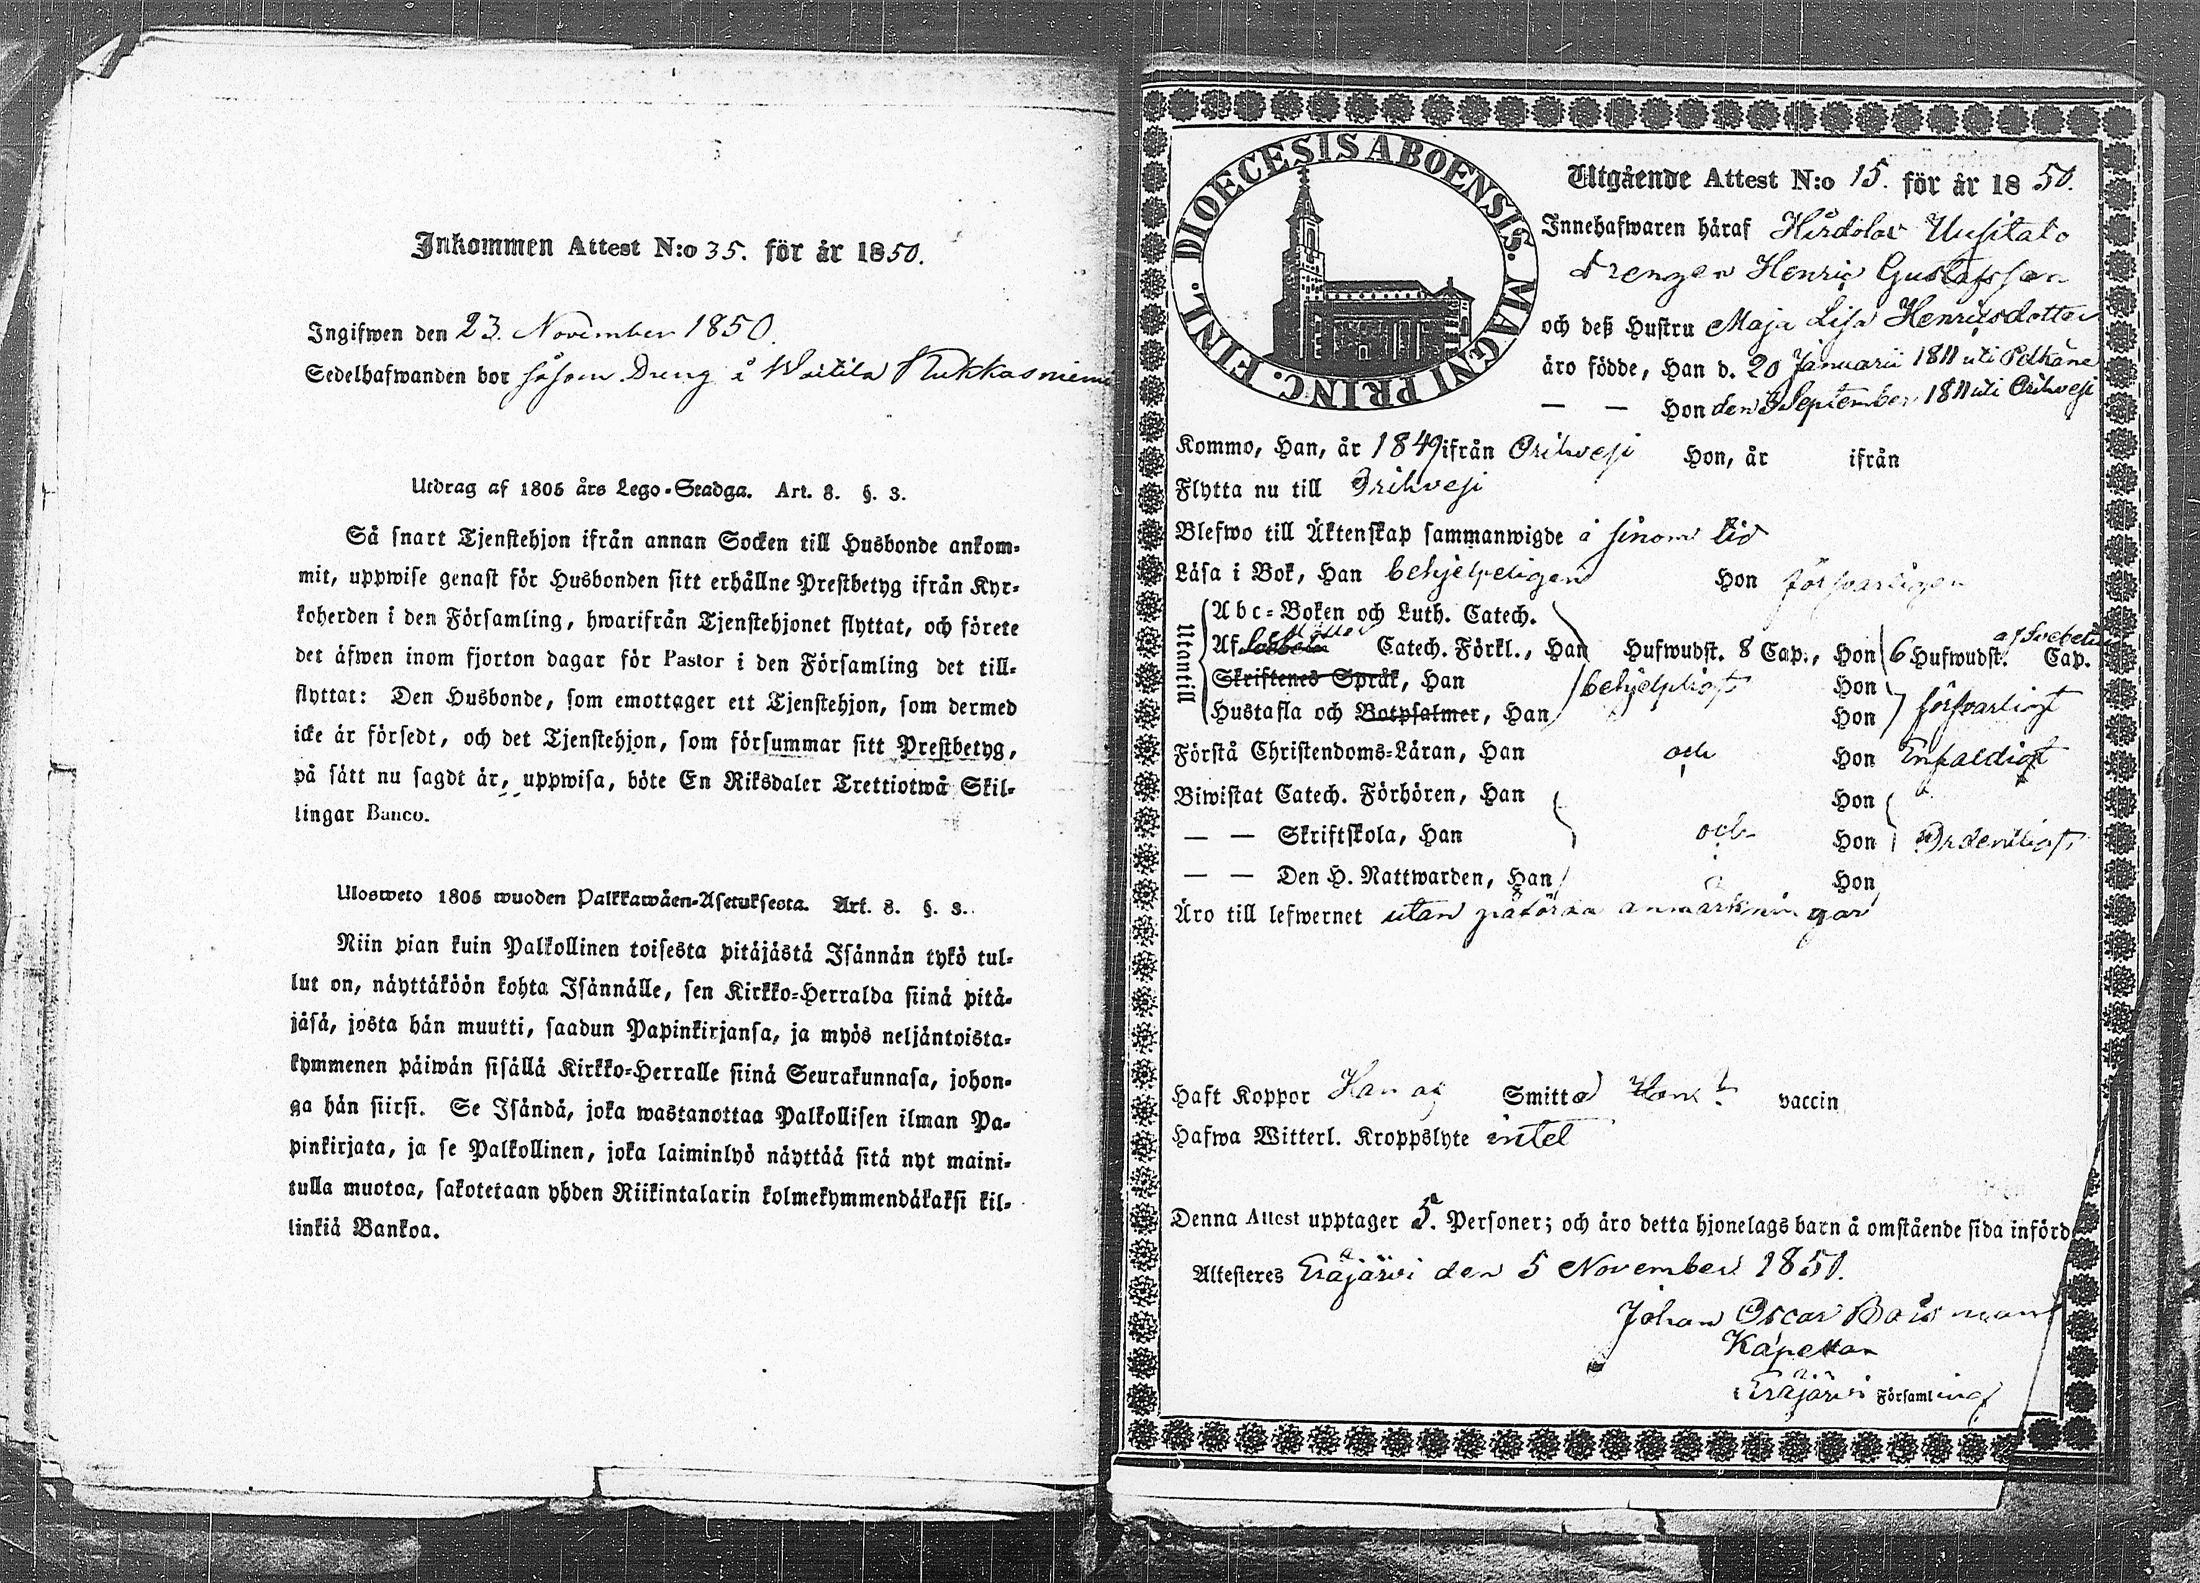 Inkommen Attest N:o 35. för år 1850.
Ingifwen den 23. November 1850.
Sedelhafwanden bor såsom Dreng å Waitila Kukkasniemi
Utdrag af 1805 års Lego-Stadga. Art. 8. §. 3.
Så snart Tjenstehjon ifrån annan Socken till Husbonde ankom-
mit, uppwise genast för Husbonden sitt erhållne Prestbetyg ifrån Kyr-
koherden i den Församling, hwarifrån Tjenstehjonet flyttat, och förete
det äfwen inom fjorton dagar för Pastor i den Församling det till-
flyttat: Den Husbonde, som emottager ett Tjenstehjon, som dermed
icke är försedt, och det Tjenstehjon, som försummar sitt Prestbetyg,
på sätt nu sagdt är, uppwisa, böte En Riksdaler Trettiotwå Skil-
lingar Banco.
Ulosweto 1805 wuoden Palkkawäen-Asetuksesta. Art. 8. §. 3.
Niin pian kuin Palkollinen toisesta pitäjästä Isännän tykö tul-
lut on, näyttäköön kohta Isännälle, sen Kirkko-Herralda siinä pitä-
jäsä, josta hän muutti, saadun Papinkirjansa, ja myös neljäntoista-
kymmenen päiwän sisällä Kirkko-Herralle siinä Seurakunnasa, johon-
ga hän siirsi. Se Isändä, joka wastanottaa Palkollisen ilman Pa-
pinkirjata, ja se Palkollinen, joka laiminlyö näyttää sitä nyt maini-
tulla muotoa, sakotetaan yhden Riikintalarin kolmekymmendäkaksi kil-
linkiä Bankoa.
DIOECESIS ABOENSIS. MAGNI PRINC. FINL.
Utgående Attest N:o 15. för år 1850.
Innehafwaren häraf Hirdolax Uusitalo
Drengen Henric Gustafsson
och deß Hustru Maja Lisa Henricsdotter
äro födde, Han d. 20 Januarii 1811 uti Pelkäne
— — Hon den September 1811 uti Orihvesi
Kommo, Han, år 1849 ifrån Orihvesi Hon, år ifrån
Flytta nu till Orihvesi
Blefwo till Äktenskap sammanwigde i sinom tid
Läsa i Bok, Han behjelpeligen Hon försvarligen
Utantill
Abc-Boken och Luth. Catech.
Af Möller Catech. Förkl., Han Hufwudst. 8 Cap., Hon 6 Hufwudst. af Svebelii Cap.
Skriftenes Språk, Han behjelpligt Hon
Hustafla och Botpsalmer, Han Hon försvarligt
Förstå Christendoms-Läran, Han och Hon Enfaldigt
Biwistat Catech. Förhören, Han Hon
— — Skriftskola, Han och Hon Ordentligt
— — Den H. Nattwarden, Han Hon
Äro till lefwernet utan påtörda anmärkningar
Haft Koppor Han ag Smitto Hon vaccin
Hafwa Witterl. Kroppslyte intet
Denna Attest upptager 5. Personer; och äro detta hjonelags barn å omstående sida införd
Altesteres Eräjärvi den 5 November 1850.
Johan Oscar Boisman
Kapellan
i Eräjärvi Församling